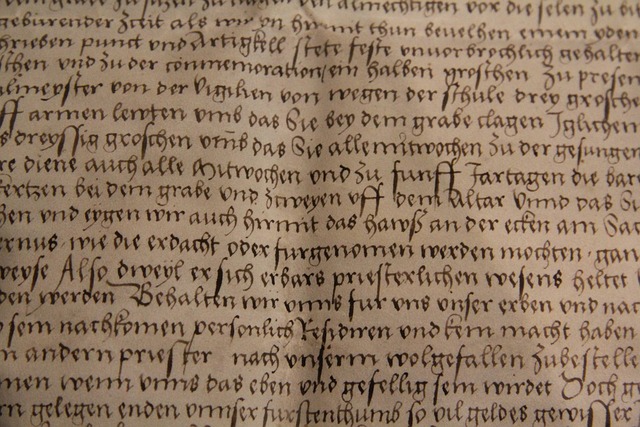 zu singen almechtigen von die selen zu
geburender Zceit als wir yn hirmit thun bevelhen einem yden
hrieben punct und Artigkell stete feste unvorbrochlich gehalten
schen und zu der commemoration ein halben groschen Zu presen
ulmeyster von der Vigilien von wegen der schule drey grosche
ff armen lewten umb das Sie bey dem grabe clagen Iglichen
s dreyssig groschen umb das Sie alle mitwochen zu der gesungen
re diene auch alle Mitwochen und zu funff Jartagen die bare
ertzen bei dem grabe und zweyen uff dem Altar Vnnd das Si
hen und eygen wir auch hirmit das hawß an der ecken am Sac
ernus wie die erdacht oder furgenomen werden mochten gan
weyse Also dweyl er sich erbars priesterlichen wesens heltet
den werden Behalten wir unns fur uns unser erben und nac
sein nachkomen personlich Residiren und kein macht haben
n andern priester nach unserm wolgefallen zubestelle
men wenn unns das eben und gefellig sein wirdet Doch ge
rn gelegen enden unnser furstenthumb so vil geldes gewisser